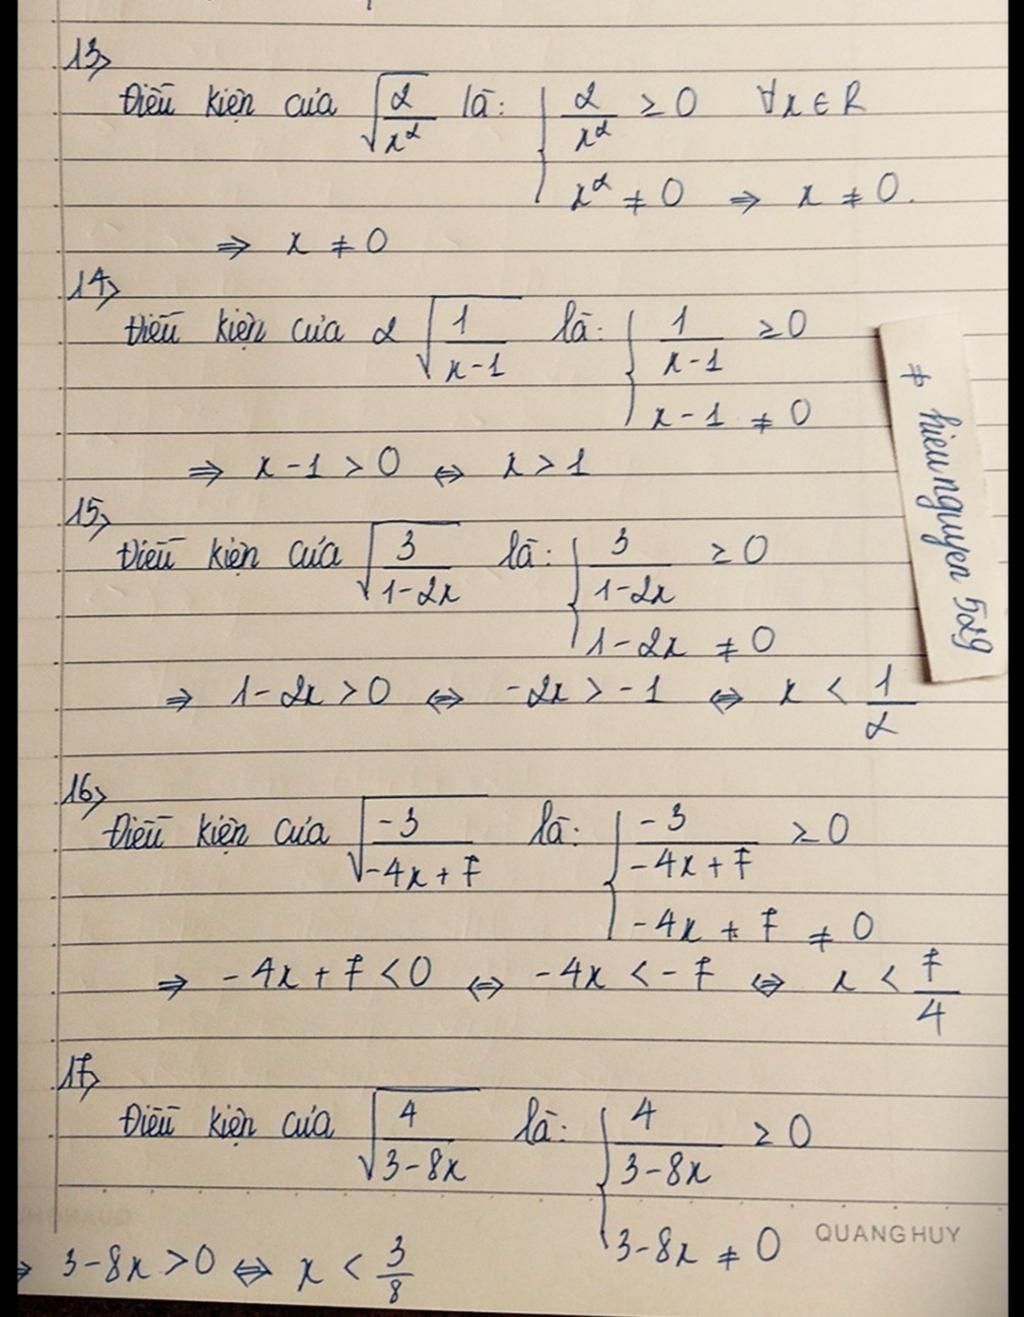 13>
Điều kiện của √(2/x²) là: { 2/x² ≥ 0 ∀x ∈ R
x² ≠ 0 ⇒ x ≠ 0.
⇒ x ≠ 0
14>
Điều kiện của 2√(1/(x-1)) là: { 1/(x-1) ≥ 0
x - 1 ≠ 0
⇒ x - 1 > 0 ⇔ x > 1
15>
Điều kiện của √(3/(1-2x)) là: { 3/(1-2x) ≥ 0
1 - 2x ≠ 0
⇒ 1 - 2x > 0 ⇔ -2x > -1 ⇔ x < 1/2
16>
Điều kiện của √(-3/(-4x+7)) là: { -3/(-4x+7) ≥ 0
-4x + 7 ≠ 0
⇒ -4x + 7 < 0 ⇔ -4x < -7 ⇔ x < 7/4
17>
Điều kiện của √(4/(3-8x)) là: { 4/(3-8x) ≥ 0
3-8x ≠ 0
⇒ 3-8x > 0 ⇔ x < 3/8
≠ hieunguyen 529
QUANGHUY